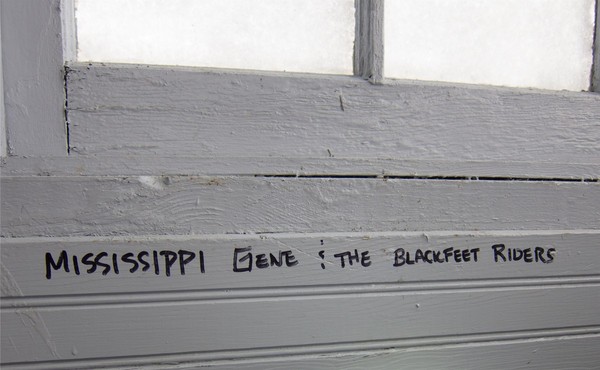 MISSISSIPPI GENE & THE BLACKFEET RIDERS